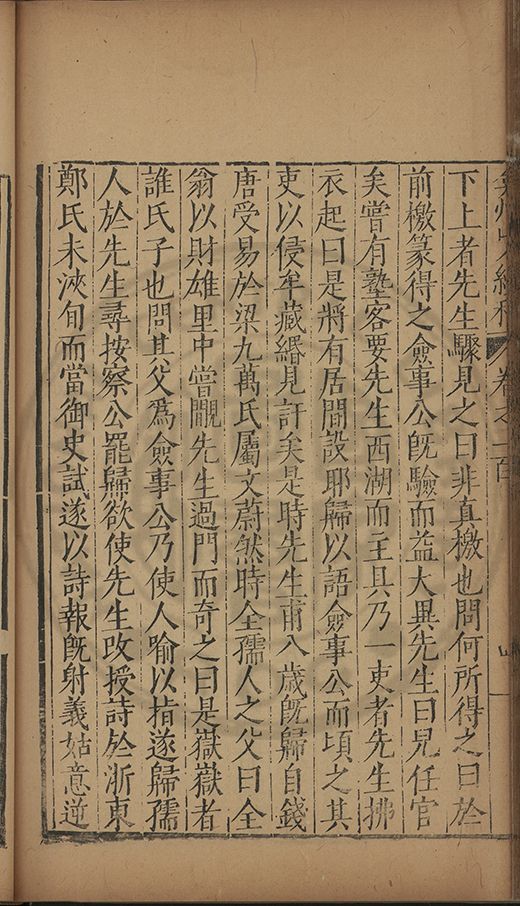 下上者先生驟見之曰非真檄也問何所得之曰於
前檄篆得之僉事公旣驗而益大異先生曰兒任官
矣嘗有塾客要先生西湖而主具乃一吏者先生拂
衣起曰是將有居間設耶歸以語僉事公而頃之其
吏以侵牟藏緡見訐矣是時先生甫八歲旣歸自錢
唐受易於梁九萬氏屬文蔚然時全孺人之父曰全
翁以財雄里中嘗覵先生過門而奇之曰是嶽嶽者
誰氏子也問其父爲僉事公乃使人喻以指遂歸孺
人於先生尋按察公罷歸欲使先生改授詩於浙東
鄭氏未浹旬而當御史試遂以詩報旣射義姑意逆